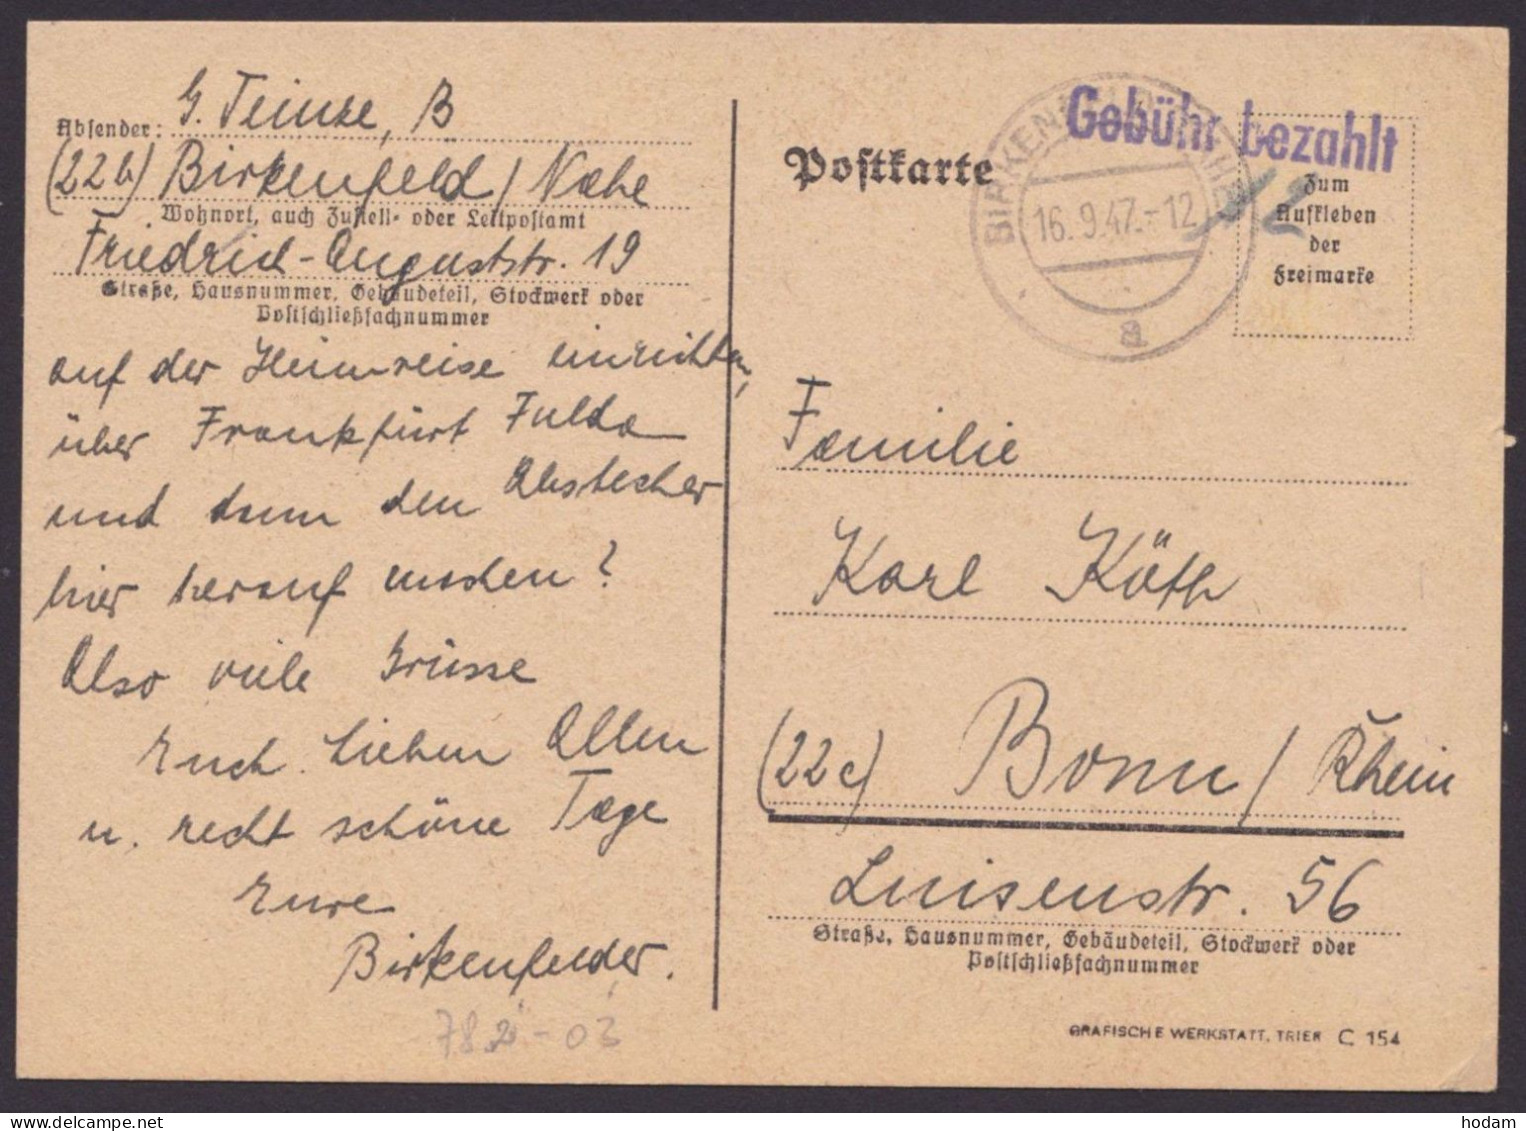 Absender: G. Teinze, B
(22b) Birkenfeld / Nahe
Wohnort, auch Zustell- oder Leitpostamt
Friedrich-Auguststr. 19
Straße, Hausnummer, Gebäudeteil, Stockwerk oder
Postschließfachnummer
auf der Heimreise einrichten,
über Frankfurt Fulda
und dann den Abstecher
hier herauf machen?
Also viele Grüsse
Euch lieben Allen
u. recht schöne Tage
Eure
Birkenfelder.
Postkarte
Gebühr bezahlt
16.9.47.-12
a
12
Zum
Aufkleben
der
Freimarke
Familie
Karl Köth
(22c) Bonn / Rhein
Luisenstr. 56
Straße, Hausnummer, Gebäudeteil, Stockwerk oder
Postschließfachnummer
GRAFISCHE WERKSTATT, TRIER C 154
hodam